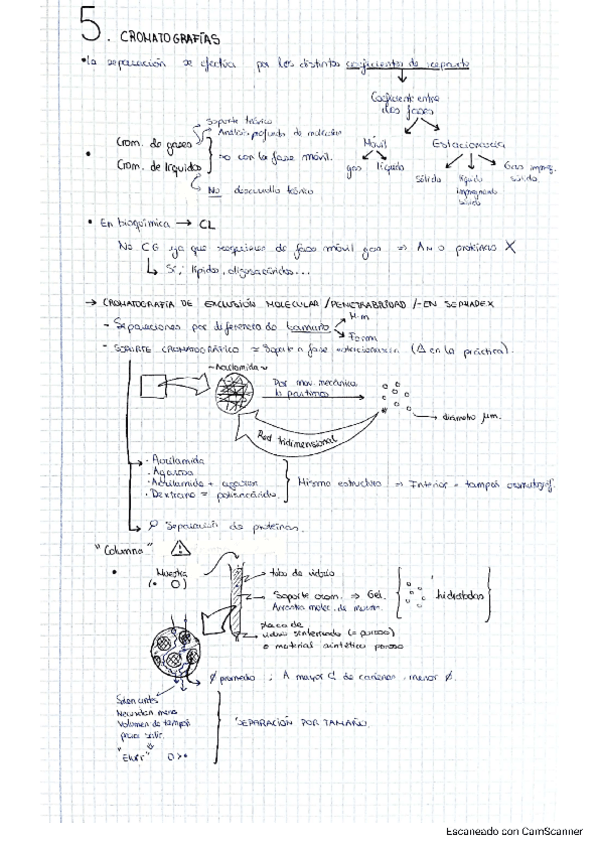 5. CROMATOGRAFÍAS
• La separación se efectúa por los distintos coeficientes de reparto
Coeficiente entre
dos fases
Móvil
Estacionaria
gas líquido
sólido líquido impregnando sólido
Soporte teórico
Análisis profundo de
• Crom. de gases
Crom. de líquidos
con la fase móvil.
No desarrollo teórico
• En bioquímica → CL
No CG ya que requieren de fase móvil gas ⇒ AN o proteínas X
↳ Sí, lípidos, oligosacáridos...
→ CROMATOGRAFÍA DE EXCLUSIÓN MOLECULAR / PENETRABILIDAD / -EN SEPHADEX
- Separaciones por diferencia de tamaño
Forma
- SOPORTE CROMATOGRÁFICO = Soporte o fase estacionaria (Δ en la práctica).
Acrilamida
Por mov. mecánico
lo partimos
→ diámetro μm.
Red tridimensional
· Acrilamida
· Agarosa
· Acrilamida + agarosa
· Dextrano = polisacárido
Misma estructura ⇒ Interior = tampón
Separación de proteínas.
"Columna"
• Muestra
(• O)
→ tubo de vidrio
→ Soporte crom. ⇒ Gel.
hidratados
placa de
vidrio sinterizado (o poroso)
o material sintético poroso
Ø promedio ; A mayor de cadenas, menor Ø.
Salen antes
Necesitan menos
Volumen de tampón
para salir.
"Eluir" O > •
SEPARACIÓN POR TAMAÑO.
Escaneado con CamScanner